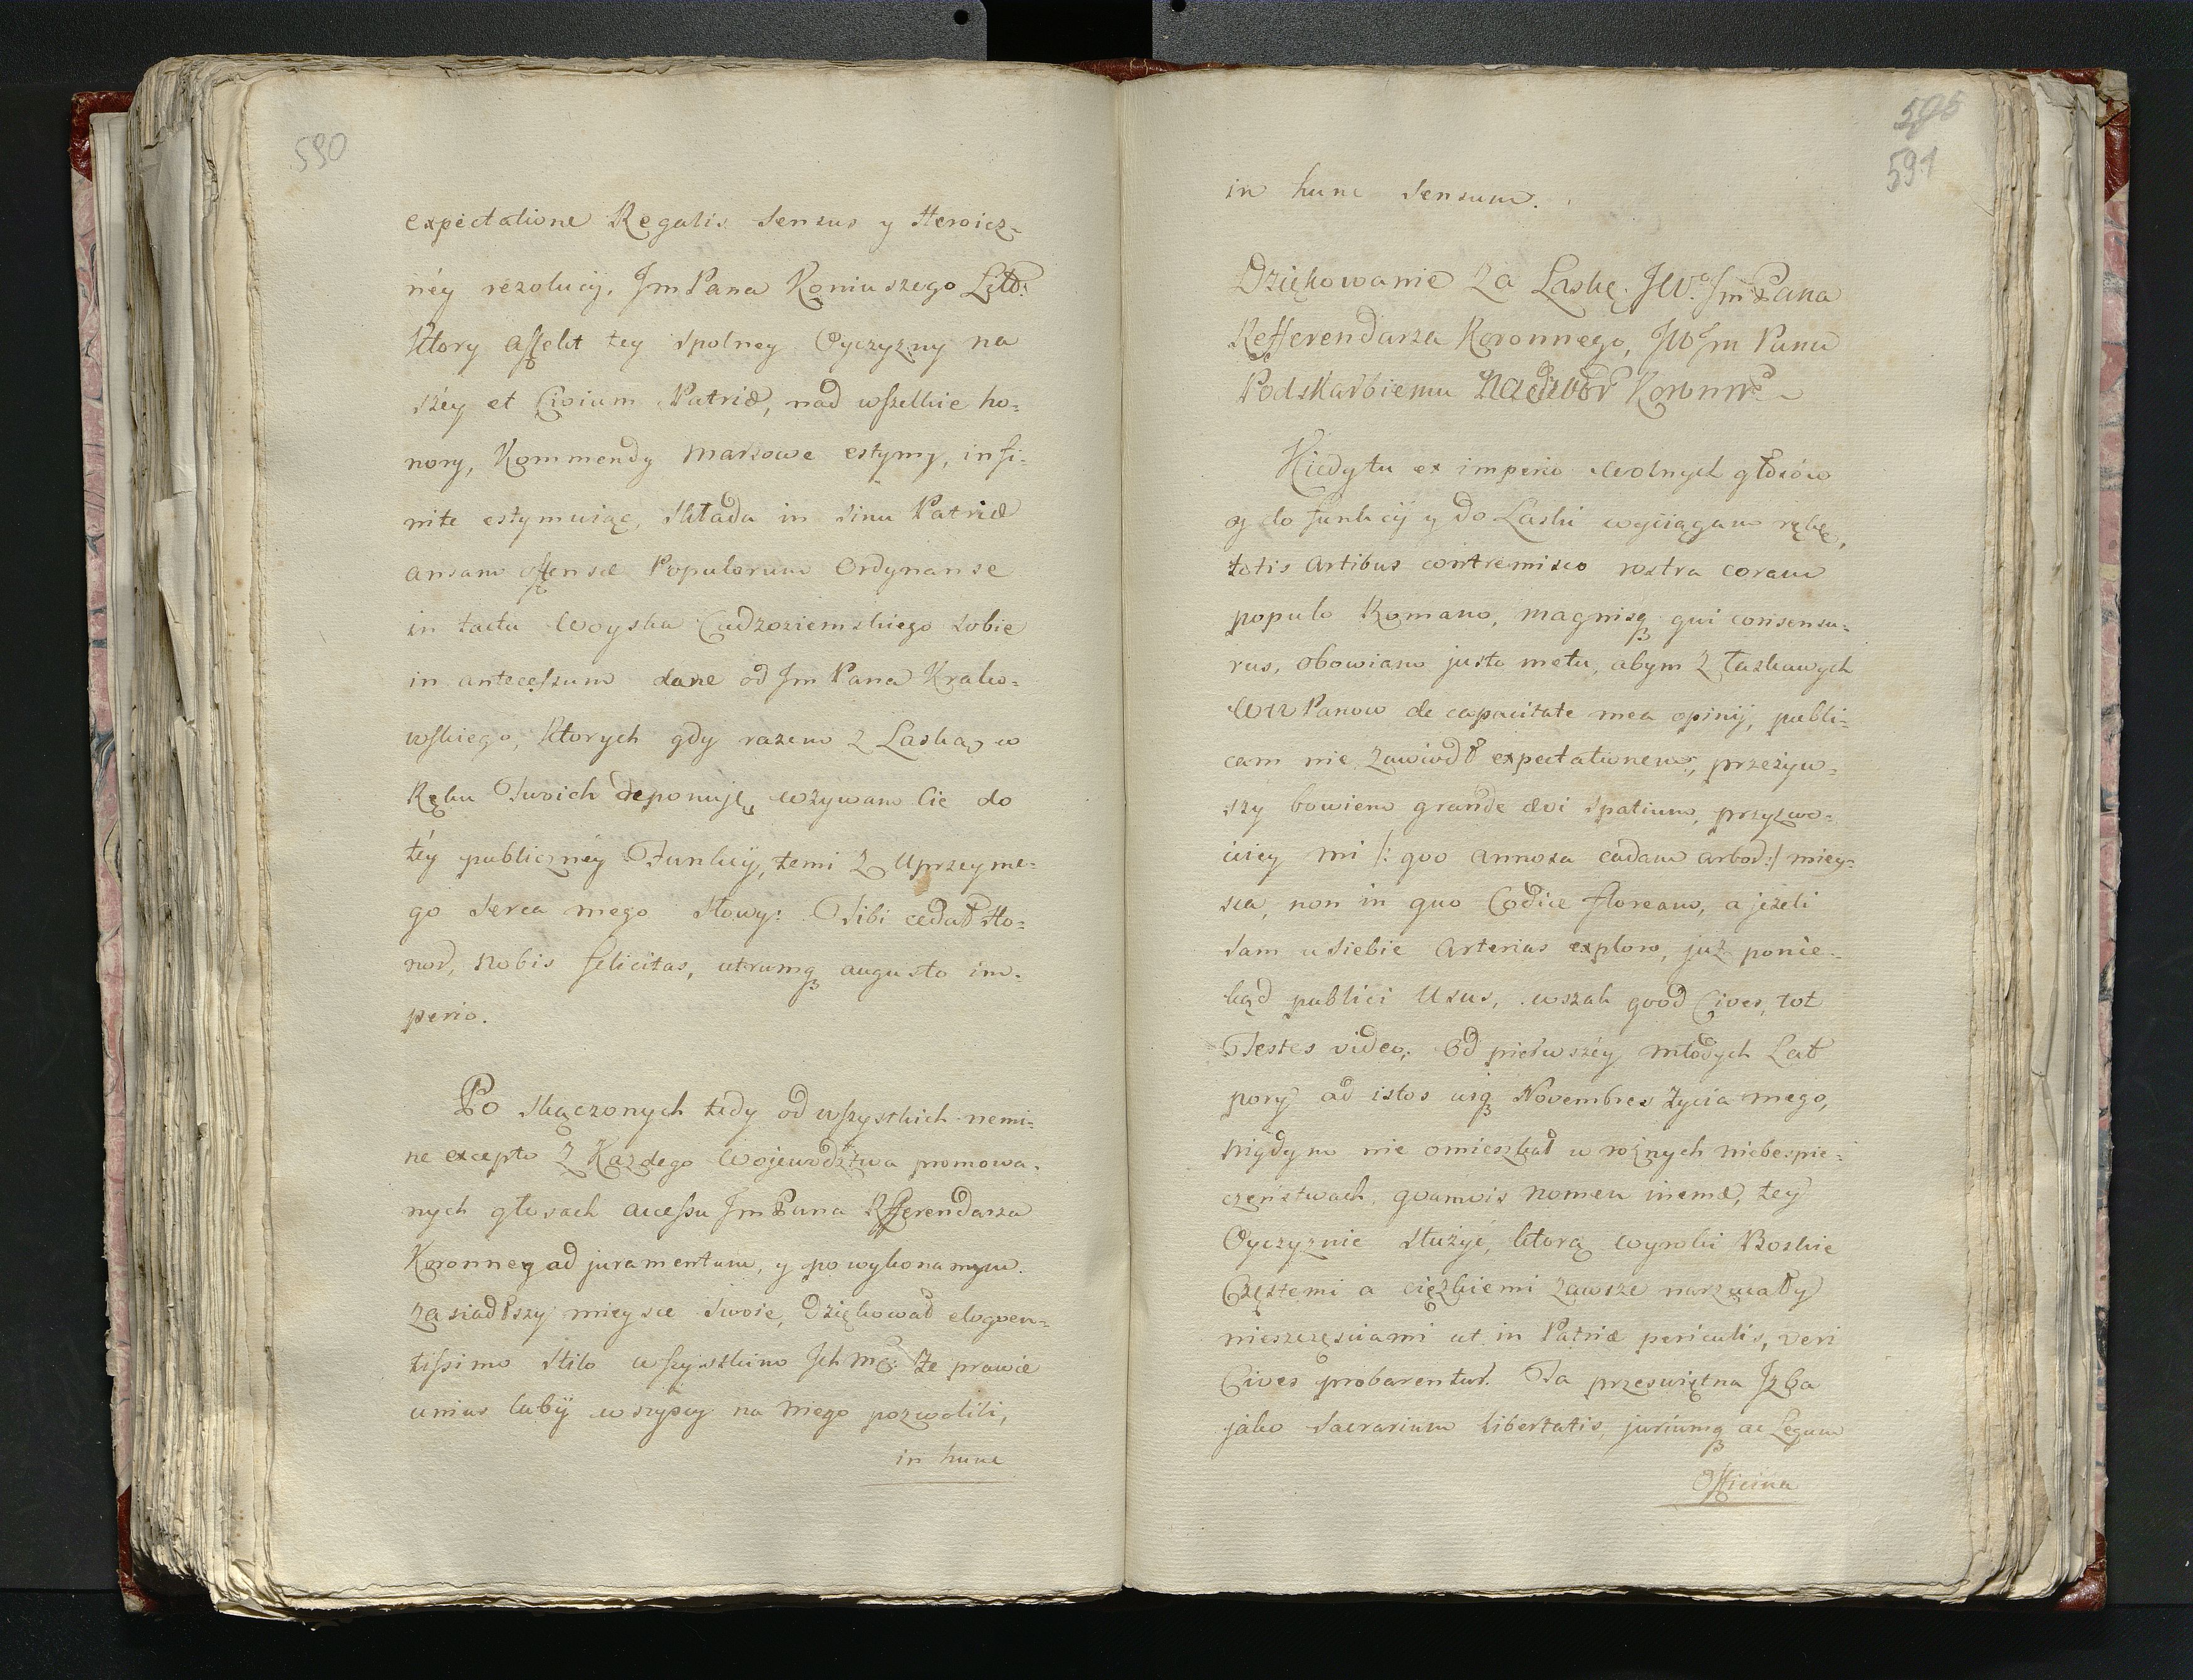 590
expectatione Regalis Sensus y Heroicz=
néy rezolucij, Jm Pana Koniuszego Litt:
Ktory affekt tey Spolney Oyczyzny na
széy et Civium Patriæ, nad wszelkie ho=
nory, Kommendy marsowe estymy, infi=
nite estymuiąc, Składa in Sinu Patriæ
ansam offensæ Popularum Ordynanse
in tactu Woyska Cudzoziemskiego Sobie
in antecessum dane od Jm Pana Krako=
wskiego, Ktorych gdy razem z Laską w
Ręku Twoich deponuję, wzywam Cie do
téy publicznéy Funkcij, temi z Uprzeyme=
go Serca mego Słowy: Tibi cedat Ho=
nor, nobis felicitas, utrumqꝫ augusto im=
perio.
Po skączonych tedy od wszystkich nemi=
ne excepto z Każdego Wojewodztwa promowa=
nych głosach accessu Jm Pana Referendarza
Koronneg ad juramentum, y po wykonanym
zasiadłszy mieysce Swoie, dziękował eloqven=
tissimo Stilo wszystkim Ich mć: że prawie
unius labij wszyscy na niego pozwolili,
in hunc
595
591
in hunc Sensum.
Dziękowanie za Laskę JWo Jm Pana
Refferendarza Koronnego, JW Jm Panu
Podskarbiemu Nadwor Koronne
Kiedy tu ex imperio Wolnych głosów
y do funkcij y do Laski wyciągam rękę,
totis Artibus contremisco rostra coram
populo Romano, magnisqꝫ qui consensu=
rus, obowiam justo metu, abym z łaskawych
WM Panow de capacitate mea opinij, publi=
cam nie zawiodł expectationem, przeżyw=
szy bowiem grande ævi Spatium, przyzwo=
iciey mi /: qvo annosa cadam arbor:/ miey=
sca, non in quo Codice floream, a jeżeli
Sam u Siebie Arterias exploro, już ponie=
kąd publici Usus, wszak qvod Cives, tot
Testes video. Od pierwszéy młodych Lat
pory ad istos usqꝫ Novembres życia mego,
nigdym nie omieszkał w rożnych niebespie=
czeństwach, qvamvis nomen ineme, tey
Oyczyznie Służyć, ktorą wyroki Boskie
Częstemi a ciężkiemi zawsze narzucały
nieszczęściami ut in Patriæ periculis, veri
Cives probarentur. Ta przeświętna Jzba
jako Sacrarium libertatis, juriumqꝫ ac Legum
Officina